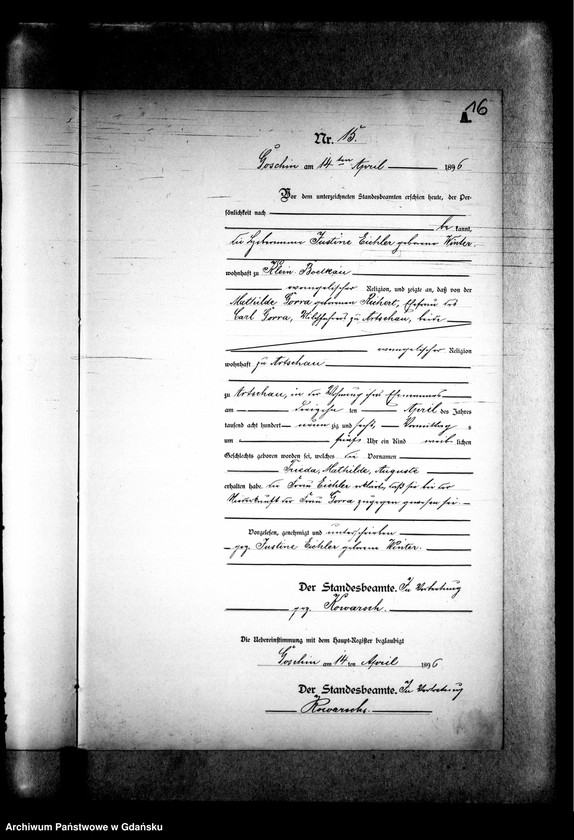 16
Nr. 15.
Goschin am 14 ten April 1896
Vor dem unterzeichneten Standesbeamten erschien heute, der Per-
sönlichkeit nach
be kannt,
die Hebamme Justine Eichler geborene Winter.
wohnhaft zu Klein Boelkau
evangelischer Religion, und zeigte an, daß von der
Mathilde Torra geborenen Reichert, Ehefrau des
Carl Torra, Milchfahrers zu Artschau, beide
evangelischer Religion
wohnhaft zu Artschau
zu Artschau, in der Wohnung ihres Ehemannes
am dreizehn ten April des Jahres
tausend acht hundert neun zig und sechs, Vormittag s
um fünf Uhr ein Kind weib lichen
Geschlechts geboren worden sei, welches die Vornamen
Frieda, Mathilde, Auguste
erhalten habe. Die Frau Eichler erklärte, daß sie bei der
Niederkunft der Frau Torra zugegen gewesen sei.
Vorgelesen, genehmigt und unterschrieben
gez. Justine Eichler geborene Winter.
Der Standesbeamte. In Vertretung
gez. Kowarsch.
Die Uebereinstimmung mit dem Haupt-Register beglaubigt
Goschin am 14 ten April 1896
Der Standesbeamte. In Vertretung
Kowarsch.
Archiwum Państwowe w Gdańsku